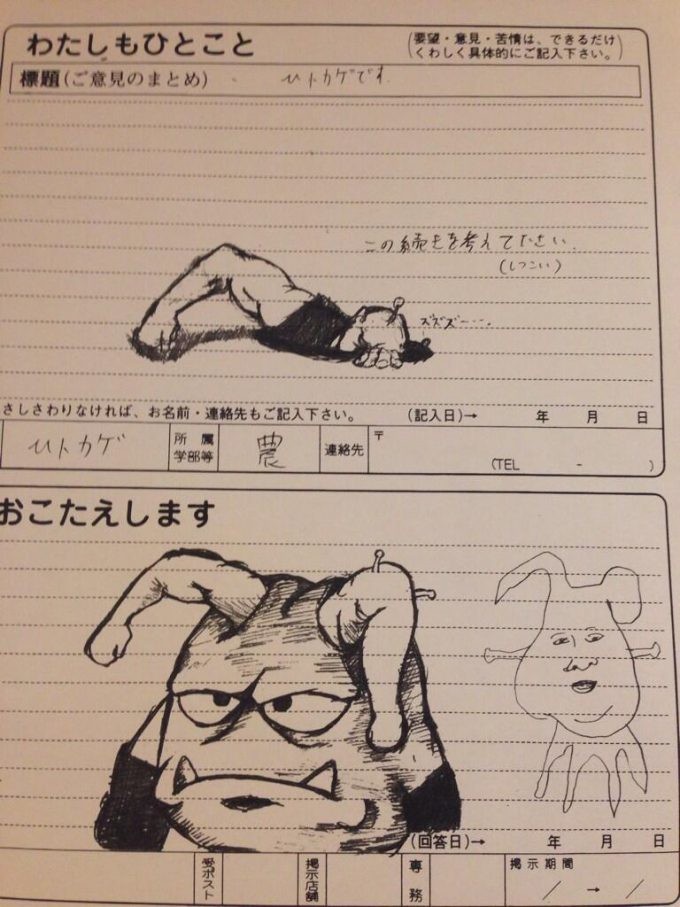 わたしもひとこと
(要望・意見・苦情は、できるだけ
くわしく具体的にご記入下さい。)
標題(ご意見のまとめ) ヒトカゲです.
この続きを考えて下さい.
(しつこい)
ズズズー…
さしさわりなければ、お名前・連絡先もご記入下さい。 (記入日)→ 年 月 日
ヒトカゲ 所属学部等 農 連絡先 〒
(TEL - )
おこたえします
(回答日)→ 年 月 日
受ポスト 掲示店舗 専務 掲示期間
/ → /